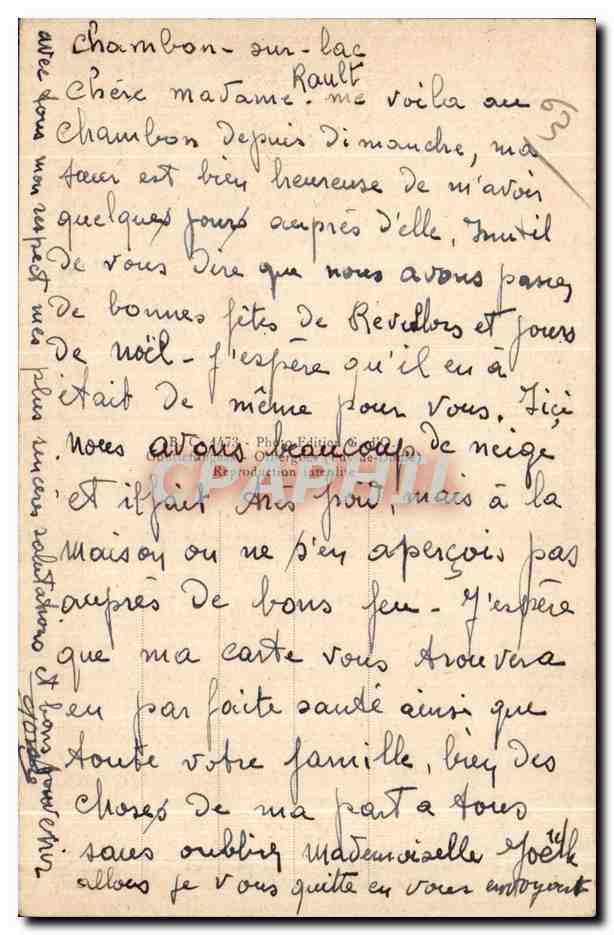 Chambon-sur-lac
Rault
Chère madame. me voila au
Chambon depuis dimanche, ma
sœur est bien heureuse de m'avoir
quelques jours auprès d'elle, Inutil
de vous dire que nous avons passez
de bonnes fêtes de Revellons et jours
de noël - j'espère qu'il en à
était de même pour vous. Içi
nous avons beaucoup de neige
et il fait très froid, mais à la
maison on ne s'en aperçois pas
auprès de bons feu - J'espère
que ma carte vous trouvera
en parfaite santé ainsi que
toute votre famille, bien des
choses de ma part a tous
sans oublier mademoiselle Joëlle
allons je vous quitte en vous envoyant
avec tous mon respect mes plus sinceres salutations et bons souvenir
63
1173 - Photo-Edition
Reproduction interdite
CARTAPHILIE